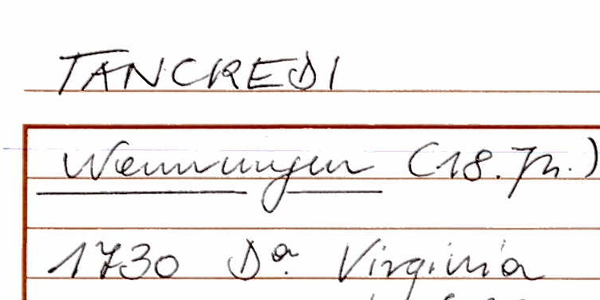 TANCREDI
Wenningen (18. Jh.)
1730 Dª. Virginia